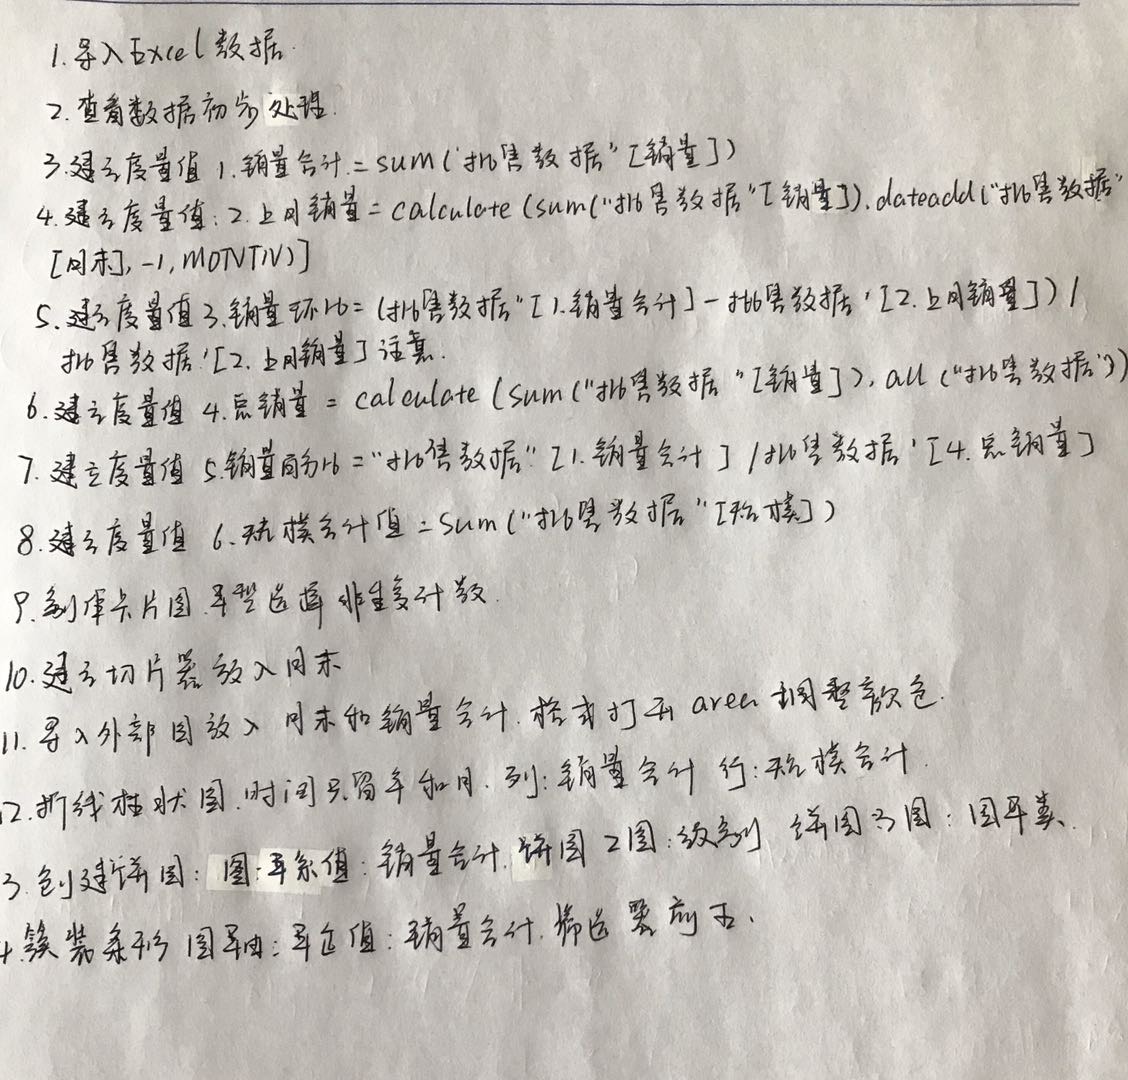 1.导入Excel数据.
2.查看数据初步处理.
3.建立度量值 1.销量合计=sum('批售数据'[销量])
4.建立度量值:2.上月销量=calculate(sum("批售数据"[销量]).dateadd("批售数据"
[月末],-1,MONTH)]
5.建立度量值3.销量环比=(批售数据"[1.销量合计]-批售数据'[2.上月销量])/
批售数据'[2.上月销量]注意.
6.建立度量值 4.总销量=calculate(sum("批售数据"[销量]),all("批售数据'))
7.建立度量值 5.销量百分比="批售数据"[1.销量合计]/批售数据'[4.总销量]
8.建立度量值 6.规模合计值=Sum("批售数据"[规模])
9.创库卡片图.车型选择非重复计数.
10.建立切片器放入月末
11.导入外部图放入 月末和销量合计.格式打开area调整颜色.
2.折线柱状图.时间只留年和月.列:销量合计 行:规模合计.
3.创建饼图: 图:车系值:销量合计.饼图2图:级别 饼图3图:图车类.
4.簇装条形图车由:车企值:销量合计.筛选器前五.